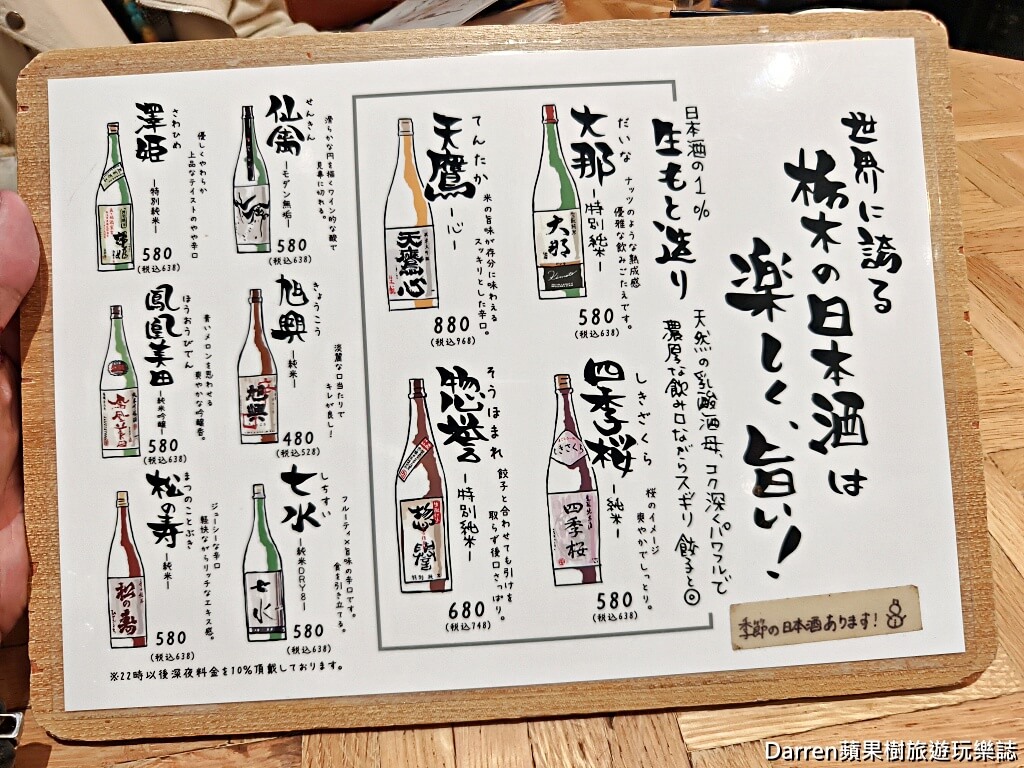 世界に誇る
栃木の日本酒は
楽しく、旨い!
季節の日本酒あります!
日本酒の1%
生もと造り
天然の乳酸酒母、コク深くパワフルで
濃厚な飲み口ながらスギリ 餃子と◎
だいな
大那
ー特別純米ー
ナッツのような熟成感
優雅な飲みごたえです。
大那
580
(税込638)
てんたか
天鷹
ー心ー
米の旨味が存分に味わえる
スッキリとした辛口。
天鷹心
880
(税込968)
しきざくら
四季桜
ー純米ー
桜のイメージ
爽やかでしっとり。
しきざくら
四季桜
580
(税込638)
そうほまれ
惣誉
ー特別純米ー
餃子と合わせても引けを
取らず後口さっぱり。
惣譽
特別純米
680
(税込748)
せんきん
仙禽
ーモダン無垢ー
滑らかな円を描くワイン的な酸で
見事に切れる。
580
(税込638)
さわひめ
澤姫
ー特別純米ー
優しくやわらか
上品なテイストのやや辛口
580
(税込638)
きょくこう
旭興
ー純米ー
淡麗な口当たりで
キレが良し!
旭興
480
(税込528)
ほうおうびでん
鳳凰美田
ー純米吟醸ー
青いメロンを思わせる
爽やかな吟醸香。
580
(税込638)
しちすい
七水
ー純米DRY8ー
フルーティ×旨味の辛口です。
食を引き立てる。
七水
580
(税込638)
まつのことぶき
松の寿
ー純米ー
ジューシーな辛口
軽快ながらリッチなエキス感。
松の寿
580
(税込638)
※22時以後深夜料金を10%頂戴しております。
Darren蘋果樹旅遊玩樂誌